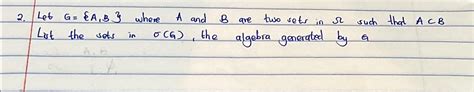 2. Let G = {A, B} where A and B are two sets in Ω such that A ⊂ B
List the sets in σ(G), the algebra generated by G